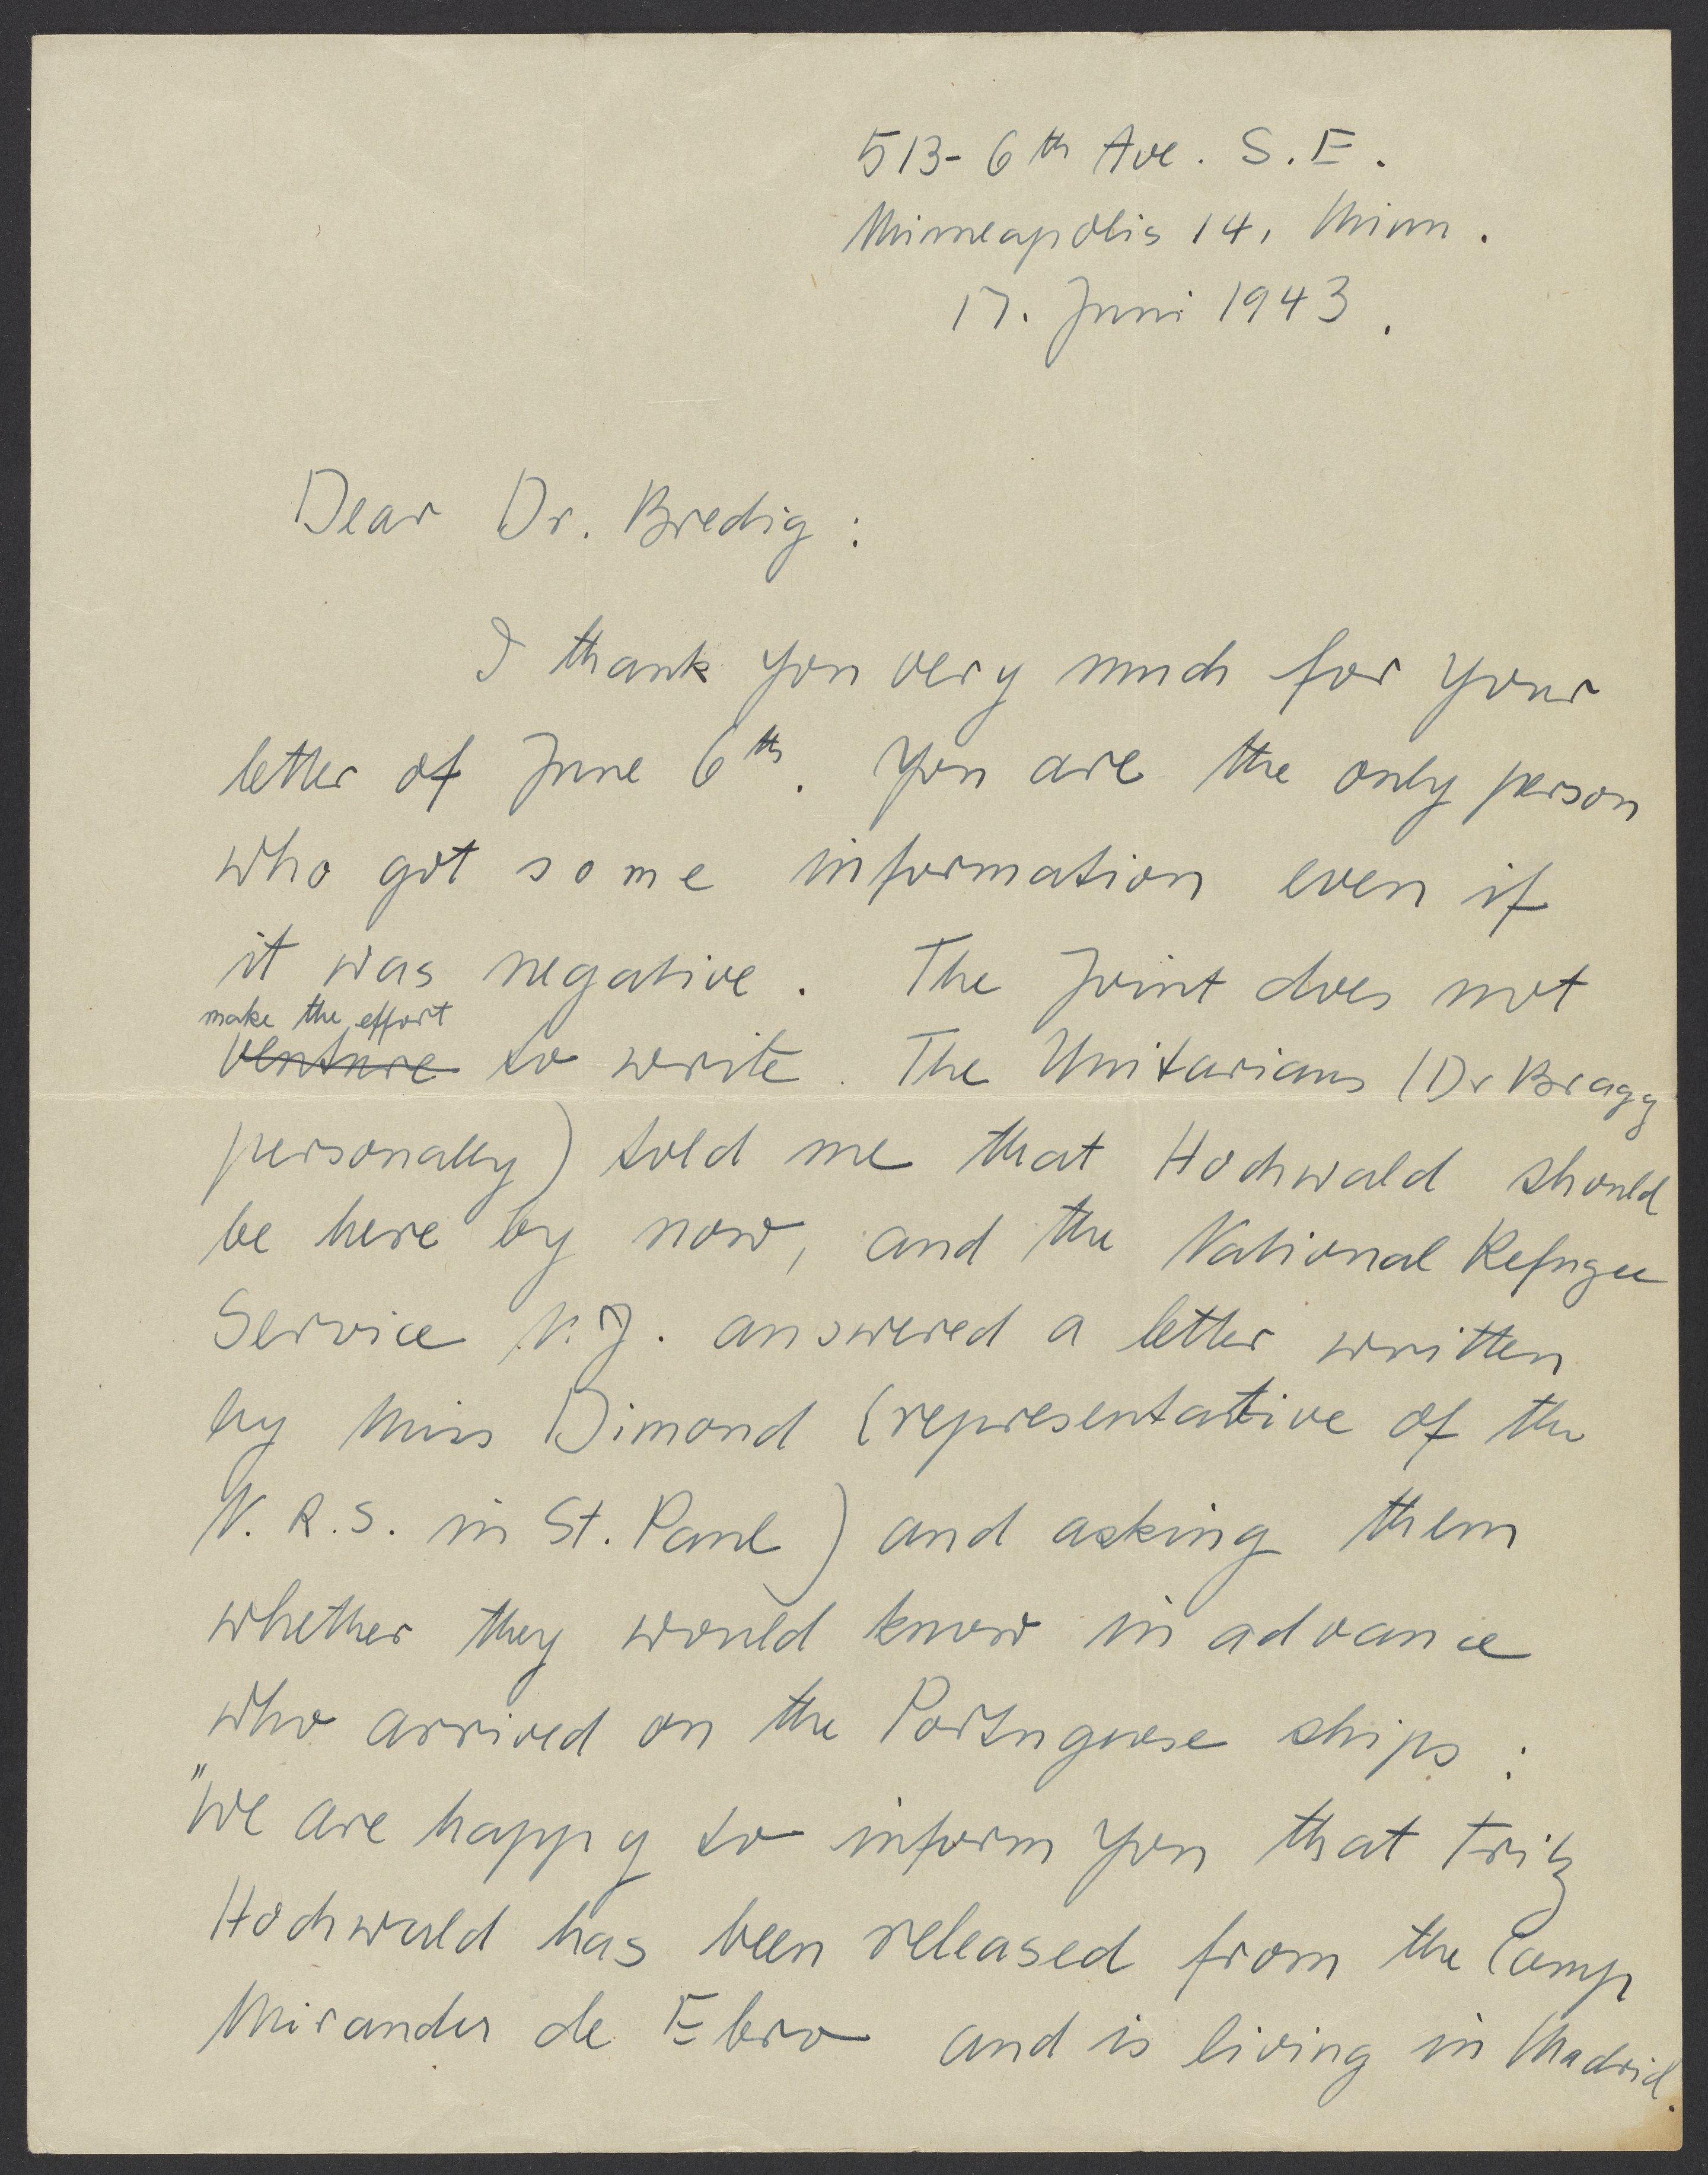 513- 6th Ave. S.E.
Minneapolis 14, Minn.
17. Juni 1943.
Dear Dr. Bredig:
I thank you very much for your
letter of June 6th. You are the only person
who got some information even if
it was negative. The Joint does not
make the effort
venture to write. The Unitarians (Dr Bragg
personally) told me that Hochwald should
be here by now, and the National Refugee
Service N.Y. answered a letter written
by Miss Dimond (representative of the
N.R.S. in St. Paul) and asking them
whether they would know in advance
who arrived on the Portuguese ships:
"We are happy to inform you that Fritz
Hochwald has been released from the Camp
Mirander de Ebro and is living in Madrid.